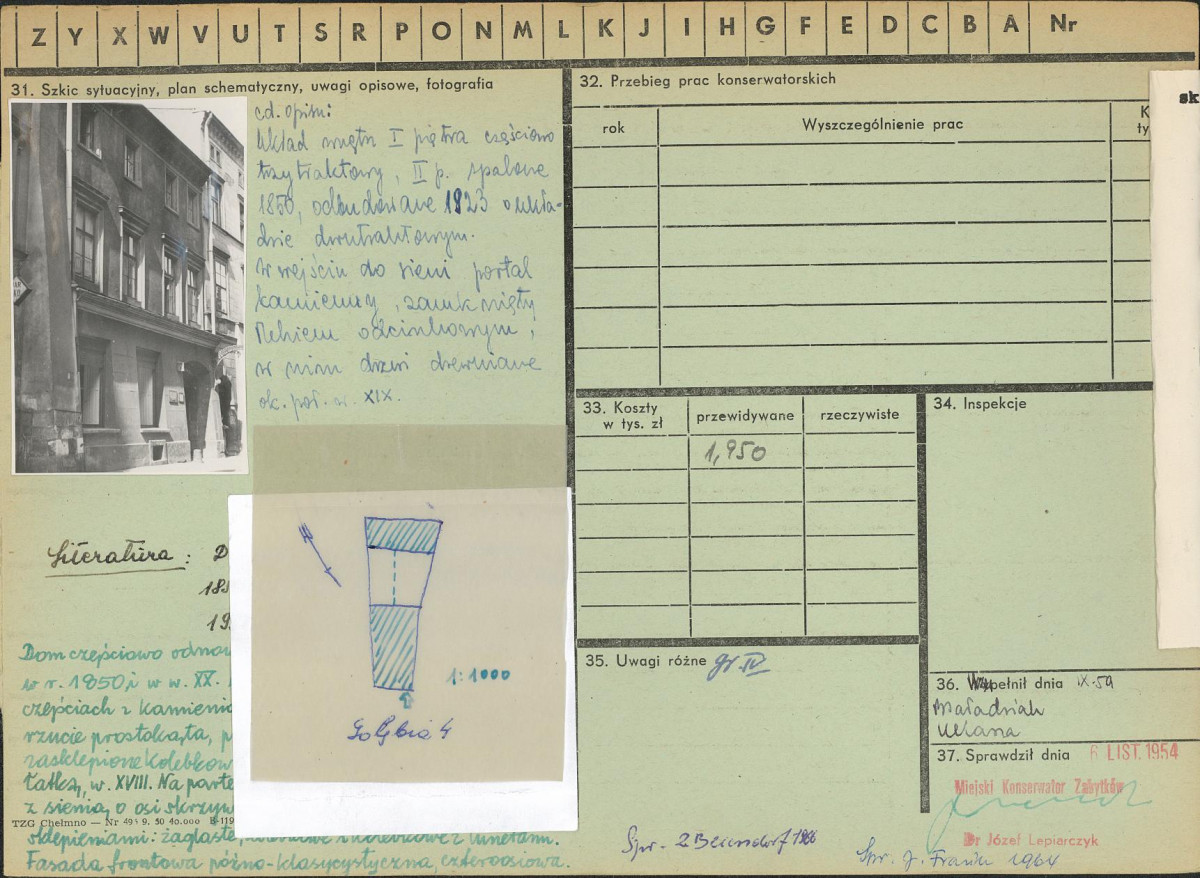 Z Y X W V U T S R P O N M L K J I H G F E D C B A Nr
31. Szkic sytuacyjny, plan schematyczny, uwagi opisowe, fotografia
cd. opisu:
Układ wnętrz I piętra częściowo
trzytraktowy, II p. spalone
1850, odbudowane 1923 o ukła-
dzie dwutraktowym.
W wejściu do sieni portal
kamienny, zamknięty
łukiem odcinkowym,
w nim drzwi drewniane
ok. poł. w. XIX.
1:1000
Gołębia 4
Literatura: D
185
19
Dom częściowo odnow
w r. 1850 i w w. XX.
częściach z kamienia
rzucie prostokąta, p
zasklepione kolebkow
w. XVIII. Na parte
z sienią o osi skrzyw
sklepieniami: żaglaste,
Fasada frontowa późno-klasycystyczna, czteroosiowa.
TZG Chełmno — Nr 495 9. 50 40.000 B-119
32. Przebieg prac konserwatorskich
rok
Wyszczególnienie prac
K
ty
sk
33. Koszty
w tys. zł
przewidywane
rzeczywiste
1,950
34. Inspekcje
35. Uwagi różne gr. IV
36. Wypełnił dnia IX-59
37. Sprawdził dnia 6 LIST. 1954
Miejski Konserwator Zabytków
Dr Józef Lepiarczyk
Spr. Z Beiersdorf 1966
Spr. J. Frania 1964